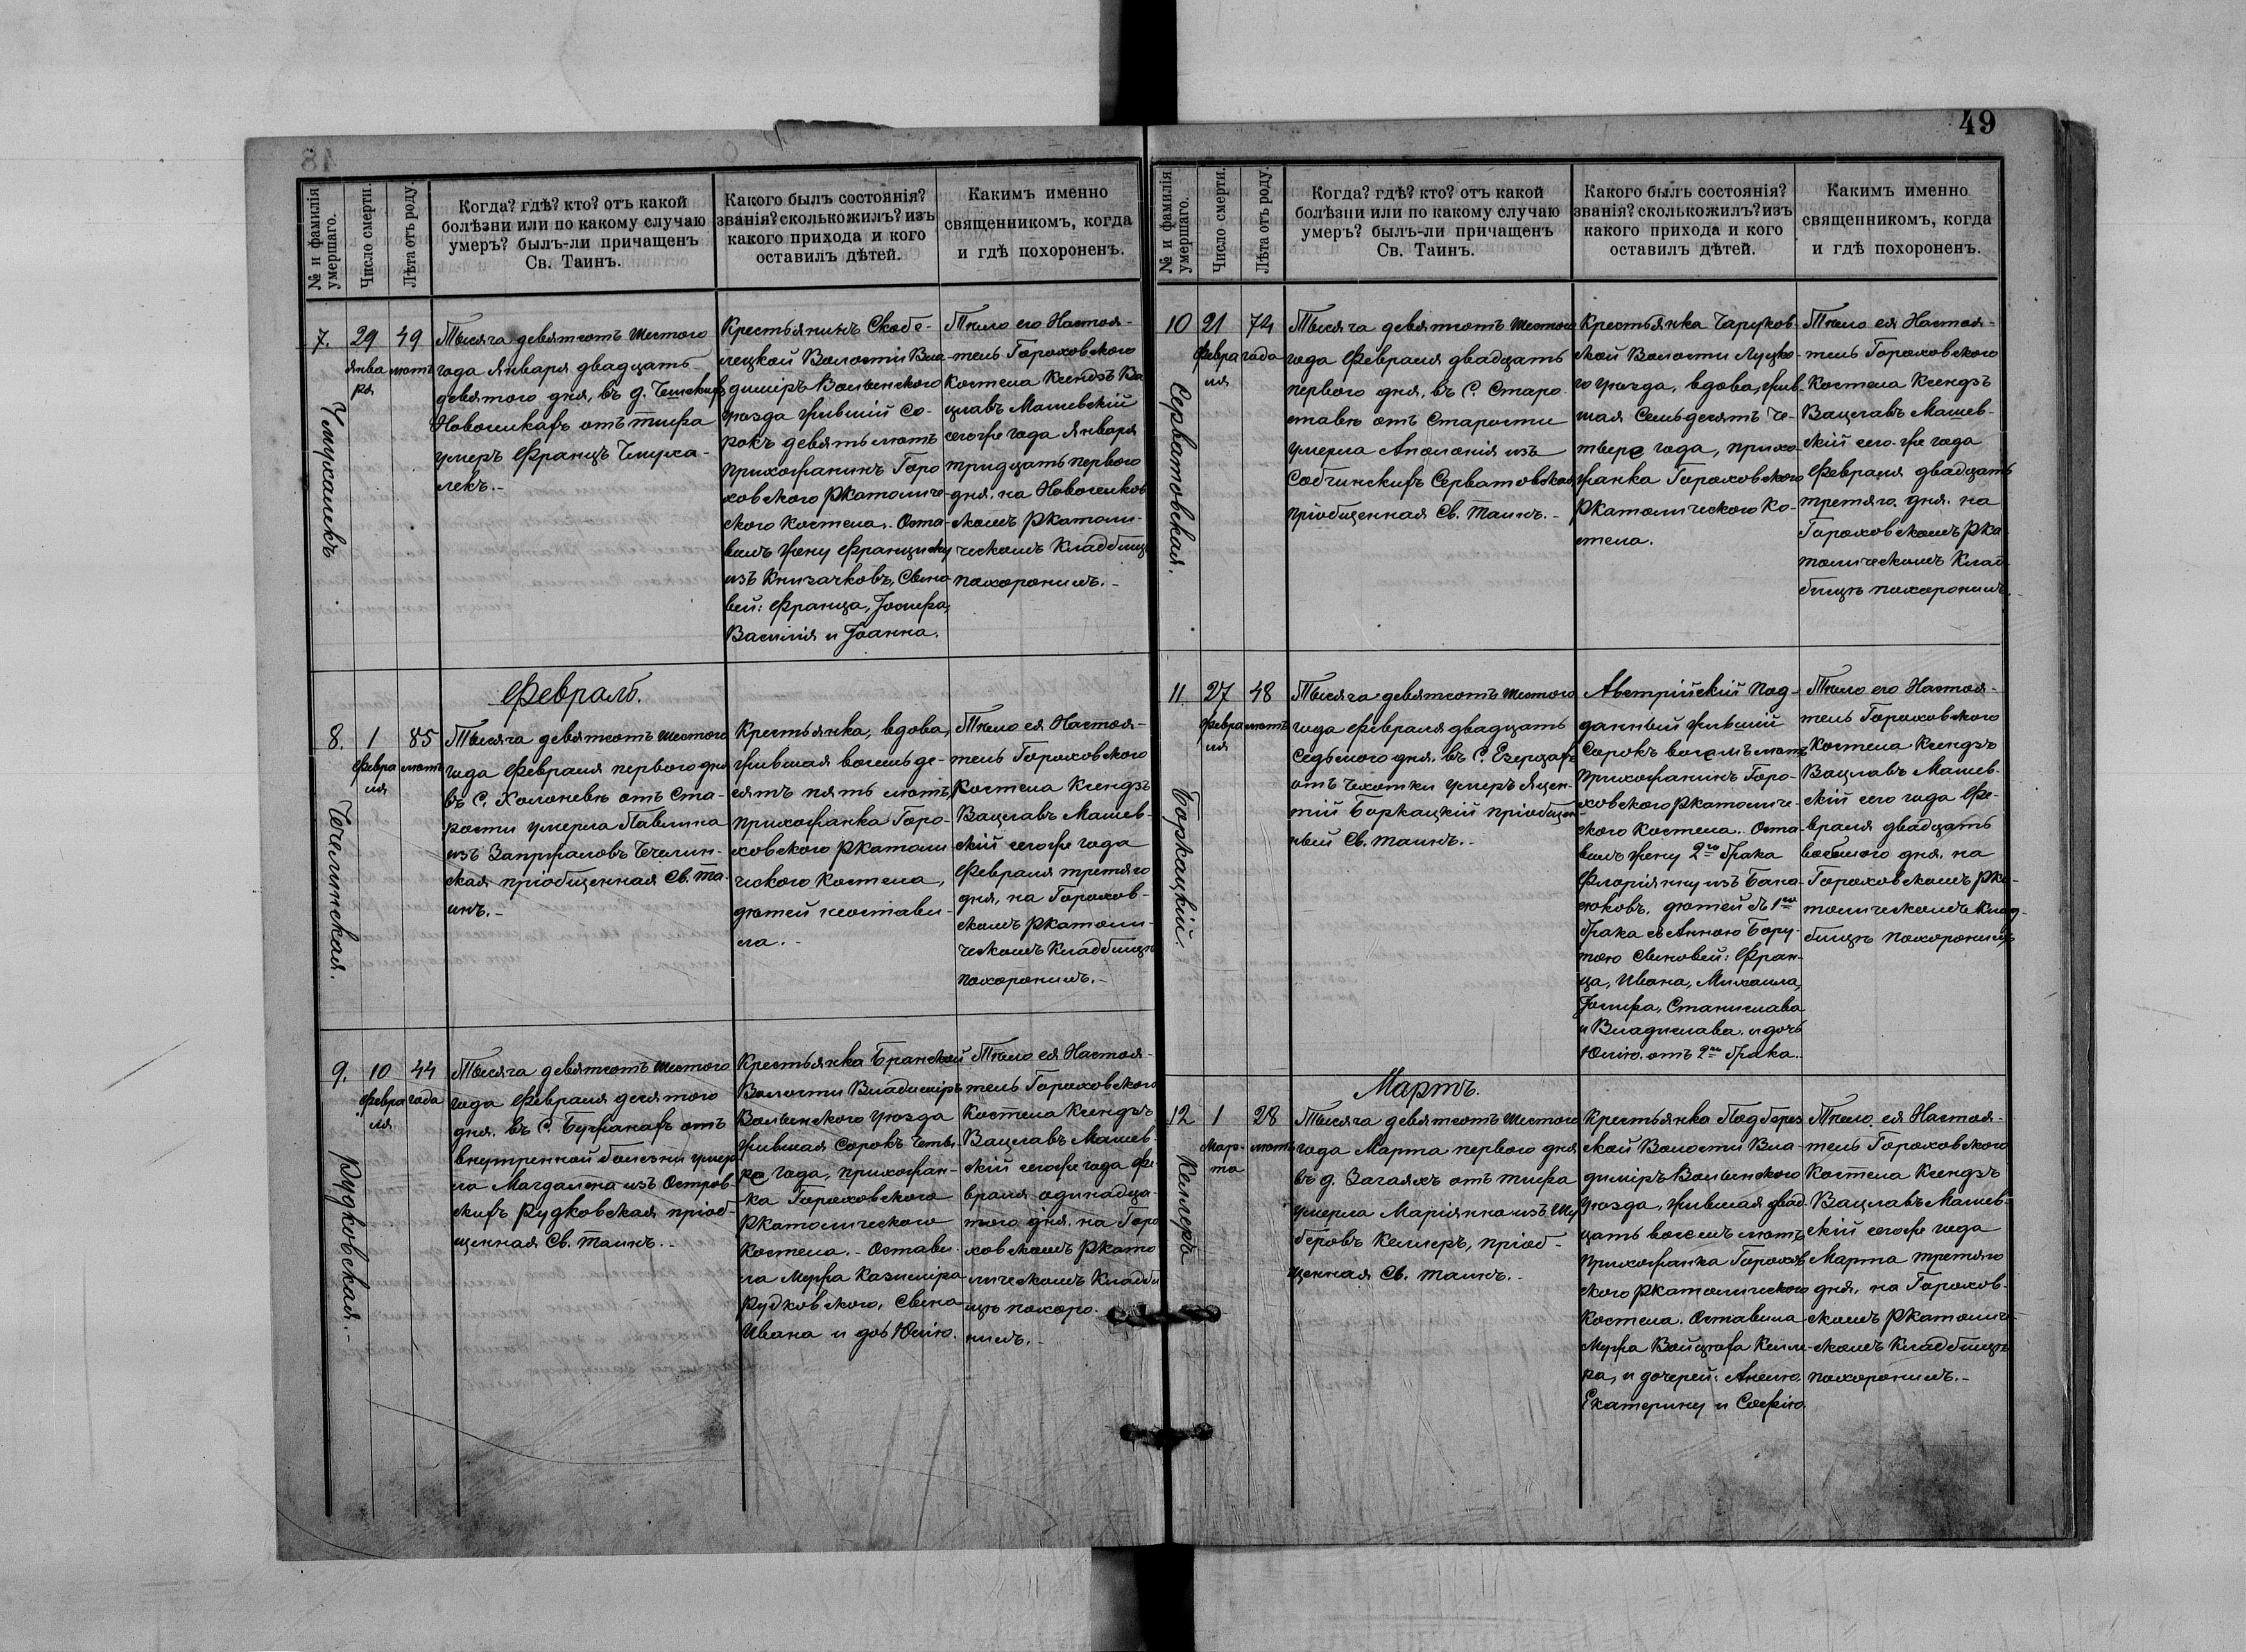 49
№ и фамилія
умершаго.
Число смерти.
Лѣта отъ роду.
Когда? гдѣ? кто? отъ какой
болѣзни или по какому случаю
умеръ? былъ-ли причащенъ
Св. Таинъ.
Какого былъ состоянія?
званія? сколько жилъ? изъ
какого прихода и кого
оставилъ дѣтей.
Какимъ именно
священникомъ, когда
и гдѣ похороненъ.
7.
Чмухалекъ
29
Янва
ря
49
лѣтъ
Тысяча девятсотъ шестого
года Января двадцать
девятого дня, въ д.
Новосилкахъ отъ тифа
умеръ Францъ Чмуха-
лекъ.-
Крестьянинъ Скобе-
лецкой Волости Вла-
димиръ Волынского
уѣзда жившій со-
рокъ девять лѣтъ
прихожанинъ Горо
ховского Ркатоличе-
ского Костела. Оста-
вилъ жену Франциску
изъ Книзачковъ, Сыно
вей: Франца, Іосифа,
Василія и Іоанна.
Тѣло его Настоя-
тель Гороховского
Костела Ксендзъ Ва
цлавъ Машевскій
сегоже года Января
тридцать первого
дня, на Новоселков
скомъ Ркатоли-
ческомъ Кладбищѣ
похоронилъ.-
Февраль.
8.
Чечелинская.
1
Февра
ля
85
лѣтъ
Тысяча девятсотъ шестого
года Февраля первого дня
въ С. Холоневѣ отъ Ста-
рости умерла Павлина
изъ Запржаловъ Чечелин-
ская пріобщенная Св. Та-
инъ.-
Крестьянка, вдова,
жившая восемьде-
сятъ пять лѣтъ,
прихожанка Горо-
ховского Ркатоли
чского Костела,
дѣтей неостави-
ла.-
Тѣло ея Настоя-
тель Гороховского
Костела Ксендзъ
Вацлавъ Машев-
скій сегоже года
Февраля третяго
дня, на Горохов-
скомъ Ркатоли-
ческомъ Кладбищѣ
похоронилъ.-
9.
Рудковская.-
10
Февра
ля
44
года
Тысяча девятсотъ шестого
года Февраля десятого
дня. въ С. Бужанахъ отъ
внутренной болезни умер
ла Магдалена изъ Остров-
скихъ Рудковская пріоб-
щенная Св. Таинъ.-
Крестьянка Бранской
Волости Владимиръ
Волынского уѣзда
жившая Сорокъ Четы-
ре года, прихожан-
ка Гороховского
Ркатолического
Костела.- Остави-
ла мужа Казиміра
Рудковского, Сына
Ивана и дочь Юлію.
Тѣло ея Настоя-
тель Гороховского
Костела Ксендзъ
Вацлавъ Машев-
скій сегоже года Фе-
враля одинадца-
того дня. на Горо
ховскомъ Ркато
лическомъ Кладби
щѣ похоро-
нилъ.-
№ и фамилія
умершаго.
Число смерти.
Лѣта отъ роду.
Когда? гдѣ? кто? отъ какой
болѣзни или по какому случаю
умеръ? былъ-ли причащенъ
Св. Таинъ.
Какого былъ состоянія?
званія? сколько жилъ? изъ
какого прихода и кого
оставилъ дѣтей.
Какимъ именно
священникомъ, когда
и гдѣ похороненъ.
10
Серватовская.
21
Февра
ля
74
года
Тысяча девятсотъ шестого
года Февраля двадцать
первого дня, въ С. Старо-
ставѣ отъ Старости
умерла Аполонія изъ
Собчинскихъ Серватовская
пріобщенная Св. Таинъ.-
Крестьянка Чаруков-
ской Волости Луцко-
го уѣзда, вдова, жив-
шая Семьдесятъ Че-
тыре года, прихо-
жанка Гороховского
Ркатолического Ко-
стела.
Тѣло ея Настоя-
тель Гороховского
Костела Ксендзъ
Вацлавъ Машев-
скій сего-же года
Февраля двадцать
третяго дня. на
Гороховскомъ Рка
толическомъ Клад-
бищѣ похоронилъ.-
11
Боржацкій.
27
Февра
ля
48
лѣтъ
Тысяча девятсотъ шестого
года Февраля двадцать
Седьмого дня. въ С. Езерцахъ
отъ Чехотки умеръ Яцен-
тій Боржацкій пріобщен-
ный Св. Таинъ.-
Австрійскій под-
данный жившій
Сорокъ восемъ лѣтъ
прихожанинъ Горо-
ховского Ркатоличе-
ского Костела. Оста-
вилъ жену 2го брака
Флоріянну изъ Бана-
сюковъ. дѣтей съ 1го
брака съ Анною Бору-
тою Сыновей: Фран-
ца, Ивана, Михаила,
Іосифа, Станислава
и Владислава. и дочь
Юлію. отъ 2го брака.-
Тѣло его Настоя-
тель Гороховского
Костела Ксендзъ
Вацлавъ Машев-
скій сего года Фе-
враля двадцать
восьмого дня. на
Гороховскомъ Рка-
толическомъ Клад-
бищѣ похоронилъ
Мартъ.
12
Келлеръ
1
Мар-
та
28
лѣтъ
Тысяча девятсотъ шестого
года Марта первого дня
въ д. Загаяхъ отъ тифа
умерла Маріянна изъ Шу
беровъ Келлеръ, пріоб-
щенная Св. Таинъ.-
Крестьянка Подберез
ской Волости Вла-
димиръ Волынского
уѣзда, жившая двад-
цать восемъ лѣтъ
прихожанка Горохов
ского Ркатолического
Костела. Оставила
Мужа Войцѣха Келле-
ра, и дочерей: Анелю
Екатерину и Софію.
Тѣло ея Настоя-
тель Гороховского
Костела Ксендзъ
Вацлавъ Машев-
скій сегоже года
Марта третяго
дня, на Горохов-
скомъ Ркатоличе-
скомъ Кладбищѣ
похоронилъ.-